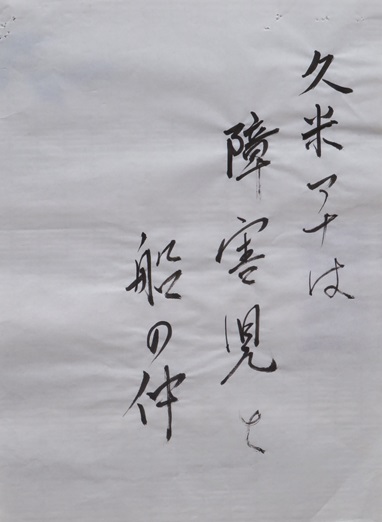 久米アナは
障害児と
船の仲